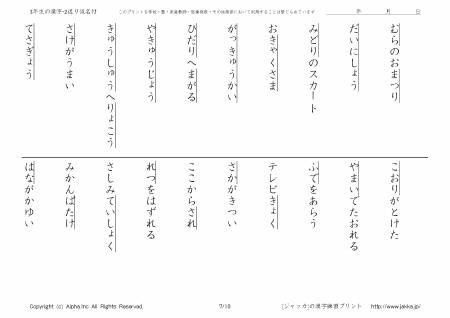 3年生の漢字-2送り仮名付
このプリントを学校・塾・家庭教師・医療機関・その他商業において利用することは禁じられています
年 月 日
むらのおまつり
だいにしょう
みどりのスカート
おきゃくさま
がっきゅうかい
ひだりへまがる
やきゅうじょう
きゅうしゅうへりょこう
さけがうまい
てさぎょう
こおりがとけた
やまいでたおれる
ふでをあらう
テレビきょく
さかがきつい
ここからされ
れつをはずれる
さしみていしょく
みかんばたけ
はながかゆい
Copyright (c) Alpha.Inc All Rights Reserved.
7/10
[ジャッカ]の漢字練習プリント http://www.jakka.jp/